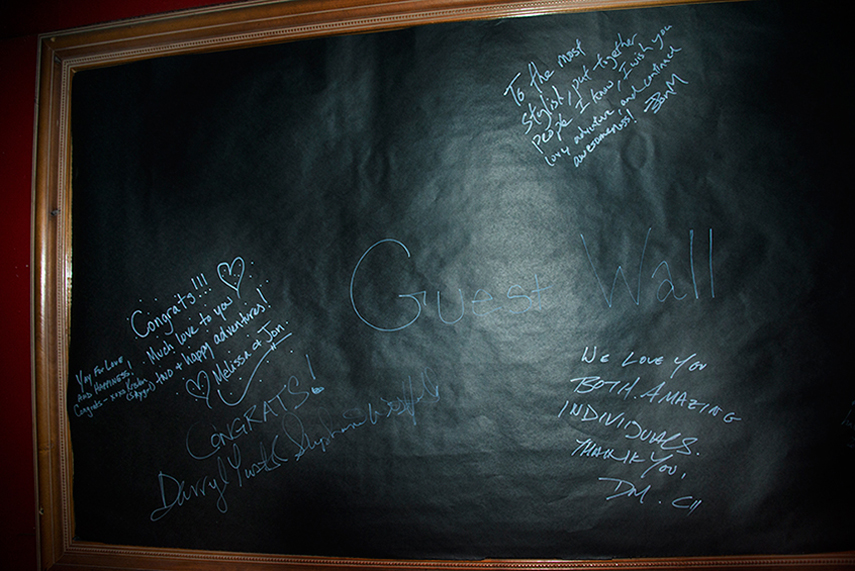 To the most
stylish, put-together
people I know, I wish you
love, adventure, and continued
awesomeness!
Guest Wall
Congrats!!!
Much love to you
two + happy adventures!
Melissa + Jon
Yay For Love
AND HAPPINESS!
Congrats - xoxo
CONGRATS!
Darryl
We LOVE YOU
BOTH. AMAZING
INDIVIDUALS.
THANK YOU,